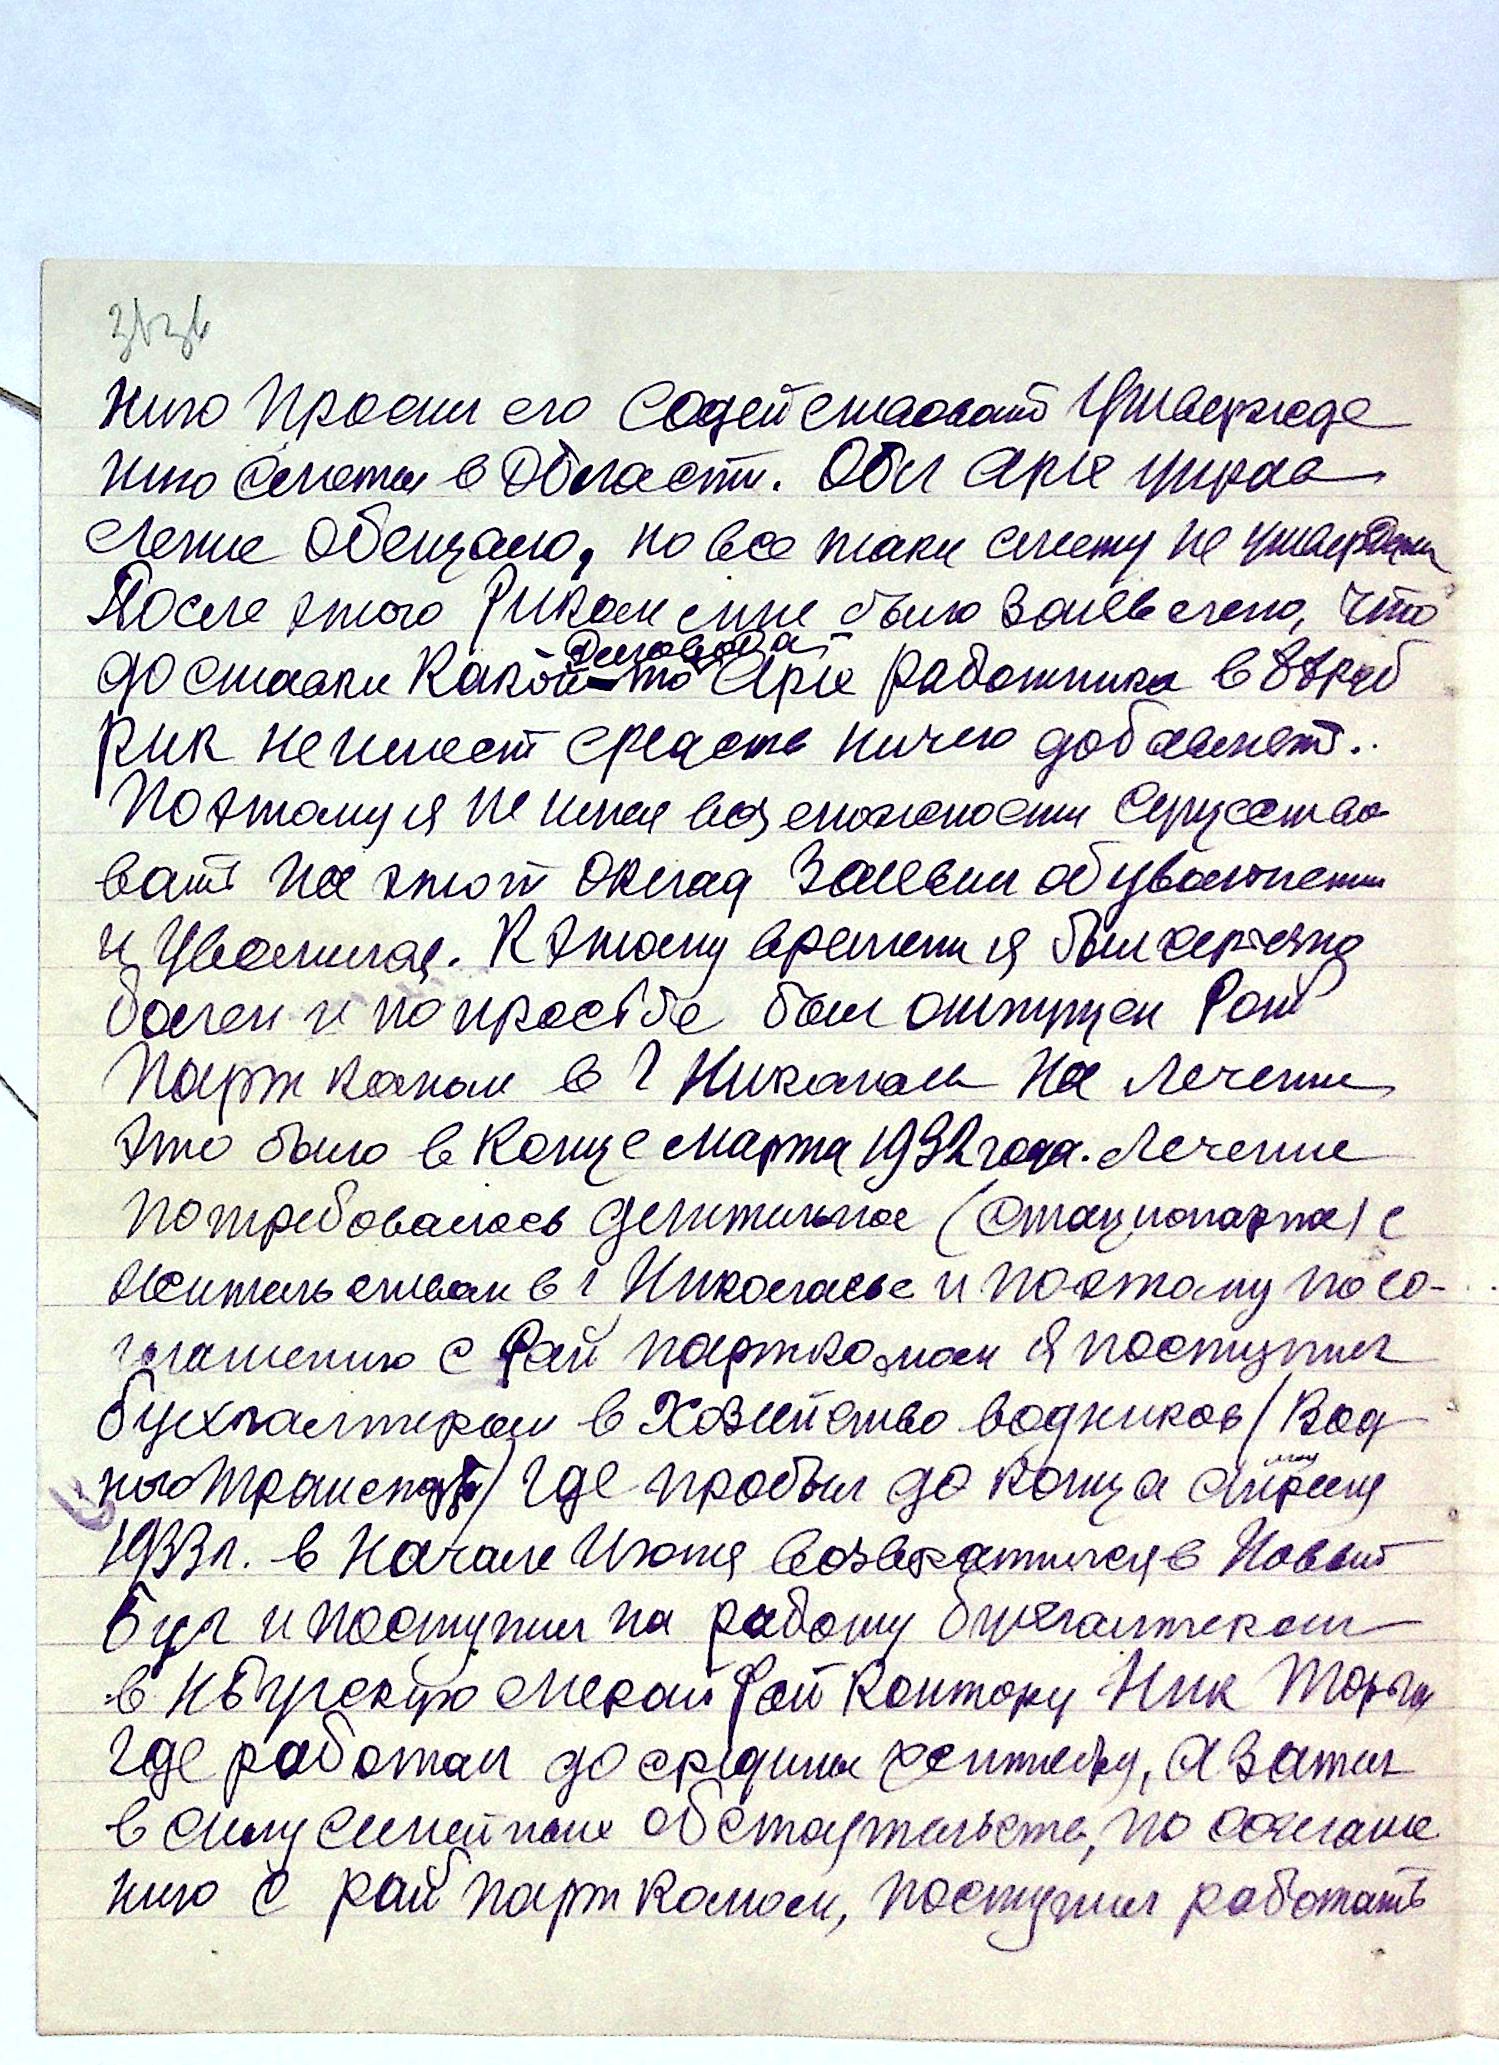 нию просил его содействовать утвержде
нию сметы в области. Обл Арх управ
ление обещало, но все таки смету не утвердили
После этого Риком мне было заявлено, что
до ставки Арх работника в
рик не имеет средств ничего добавлять..
Поэтому я не имея возможности существо
вать на этот оклад заявил об увольнении
и уволился. К этому времени я был серьезно
болен и по просьбе был отпущен Рай
парт комом в г Николаев на лечение
это было в конце марта 1932 года. Лечение
потребовалось длительное (стационарна) с
жительством в г Николаеве и поэтому по со-
глашению с Рай парткомом я поступил
бухгалтером в Хозяйство водников (Вод
ного транспорта) где пробыл до конца
1933 г. в начале Июня возвратился в Новый
Буг и поступил на работу бухгалтером
в НБугскую рай контору Ник Торга
где работал до средины сентября, а затем
в силу семейных обстоятельств, по соглаше
нию с рай парт комом, поступил работать